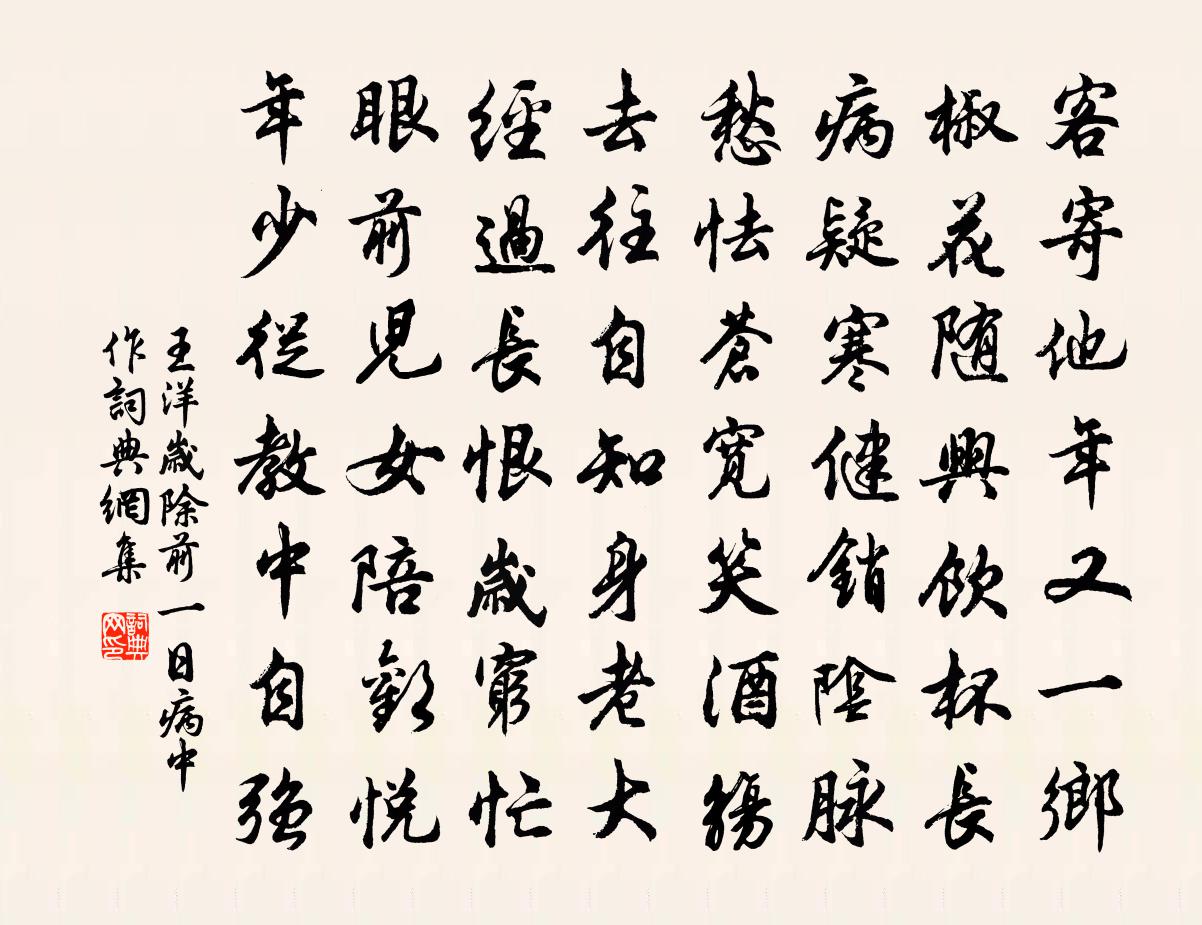 客寄他年又一鄉
椒花随興飲杯長
病疑寒健銷陰脉
愁怯蒼寬笑酒觴
去往自知身老大
經過長恨歲窮忙
眼前児女陪歡悅
年少從教中自強
王洋歲除前一日病中
作詞典網集
詞典网印